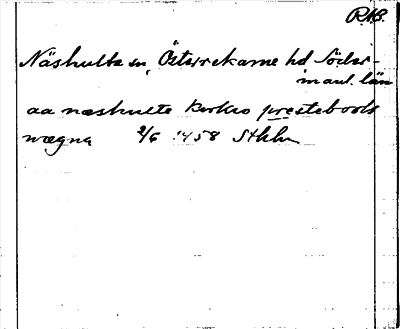 RAB.
Näshulta sn, Österrekarne hd Söder-
manl. län
aa næshulte kerkio prestebools
wægna 2/6 1458 Sthlm